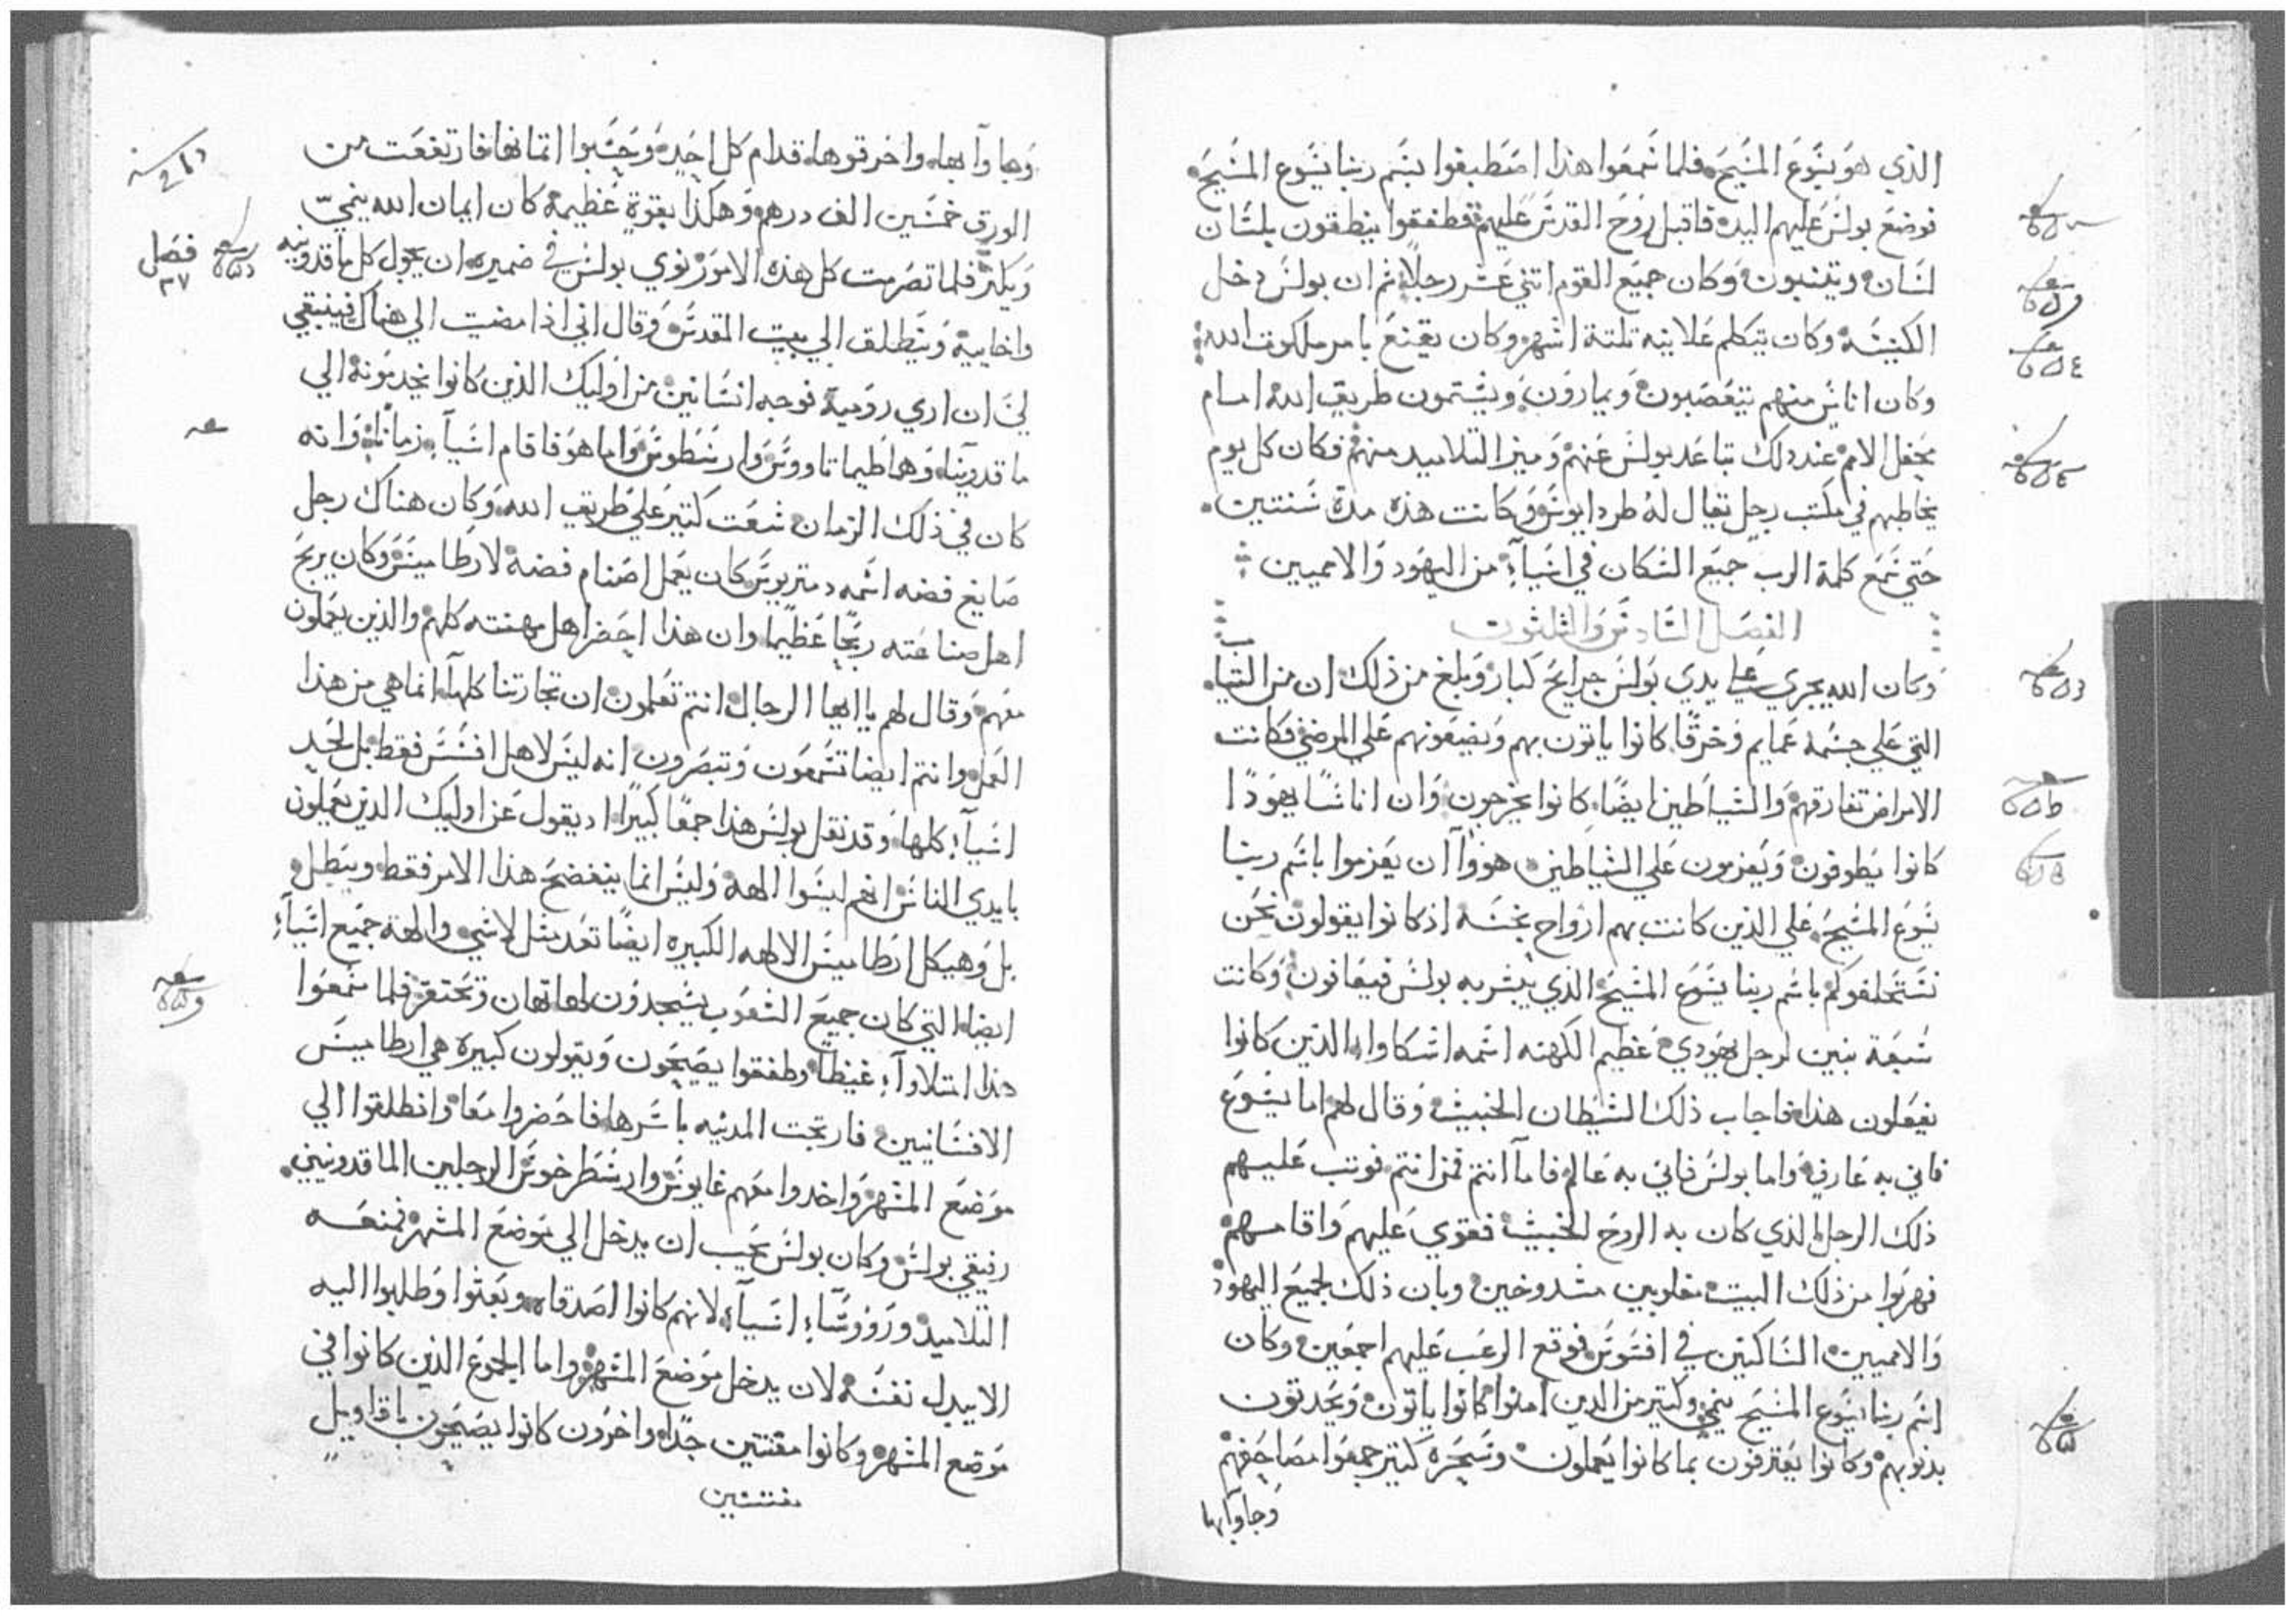 الذي هو يسوع المسيح فلما سمعوا هذا اصطبغوا بسم ربنا يسوع المسيح
فوضع بولس عليهم اليد فاقبل روح القدس عليهم فطفقوا ينطقون بلسان
لسان ويتنبون وكان جميع القوم اتني عشر رجلا ثم ان بولس دخل
الكنيسة وكان يتكلم علانيه تلتة اشهر وكان يقنع بامر ملكوت الله
وكان اناس منهم يتعصبون ويمارون ويشتمون طريق الله امام
محفل الامم عند ذلك تباعد بولس عنهم وميز التلاميد منهم فكان كل يوم
يخاطبهم في مكتب رجل يقال له طردايوس وكانت هذه مدة سنتين
حتي سمع كلمة الرب جميع السكان في اسيآ من اليهود والامميين
الفصل السادس والثلثون
وكان الله يجري علي يدي بولس جرايح كبار وبلغ من ذلك ان من التياب
التي علي جسمه عمايم وخرقا كانوا ياتون بهم ويضعونهم علي المرضي فكانت
الامراض تفارقهم والشياطين ايضا كانوا يخرجون وان اناسا يهودا
كانوا يطوفون ويعزمون علي الشياطين هووآ ان يعزموا باسم ربنا
يسوع المسيح علي الذين كانت بهم ارواح نجسه اذ كانوا يقولون نحن
نستحلفوكم باسم ربنا يسوع المسيح الذي يبشر به بولس فيعافون وكانت
سبعة بنين لرجل يهودي عظيم الكهنه اسمه اسكاوا الذين كانوا
يفعلون هذا فاجاب ذلك الشيطان الخبيث وقال لهم اما يسوع
فاني به عارف واما بولس فاني به عالم فامآ انتم فمن انتم فوتب عليهم
ذلك الرجل الذي كان به الروح الخبيث فقوي عليهم واقامهم
فهربوا من ذلك البيت مغلوبين مشدوخين وبان ذلك لجميع اليهود
والامميين الساكنين في افسوس فوقع الرعب عليهم اجمعين وكان
اسم ربنا يسوع المسيح ينمي وكتير من الدين امنوا كانوا ياتون ويحدتون
بدنوبهم وكانوا يعترفون بما كانوا يعملون وسحره كتير جمعوا مصاحفهم
وجاوآ بها
وجاوآ بها واحرقوها قدام كل احد وحسبوا اتمانها فارتفعت من
الورق خمسين الف درهم وهكذا بقوة عظيمة كان ايمان الله ينمي
ويكتر فلما تصرمت كل هذه الامور نوي بولس في ضميره ان يجول كل ماقدونيه
فصل
٣٧
واخاييه وينطلق الي بيت المقدس وقال اني اذا مضيت الي هناك فينبغي
لي ان اري روميه فوجه انسانين من اوليك الذين كانوا يخدمونه الي
ماقدونيا وهما طيماتاووس وارسطوس واما هو فاقام اسيآ زمانا وانه
كان في ذلك الزمان شعت كتير علي طريق الله وكان هناك رجل
صايغ فضه اسمه دمتريوس كان يعمل اصنام فضة لارطاميس وكان يربح
اهل صناعته ربحا عظيما وان هذا احضر اهل مهنته كلهم والذين يعملون
معهم وقال لهم يا ايها الرجال انتم تعلمون ان تجارتنا كلهآ انما هي من هذا
العمل وانتم ايضا تسمعون وتبصرون انه ليس لاهل افسس فقط بل لحد
اسيآ كلها وقد نقل بولس هذا جمعا كبيرا اد يقول عن اوليك الذين يعملون
بايدي الناس انهم ليسوا الهة وليس انما ينفضح هذا الامر فقط ويبطل
بل وهيكل ارطاميس الالاهه الكبيره ايضا تعد متل لاشي والهة جميع اسيآ
ايضا التي كان جميع الشعوب يسجدون لها تهان وتحتقر فلما سمعوا
هذا امتلاوآ غيظا وطفقوا يصيحون ويقولون كبيره هي ارطاميس
الافسانيين فارتجت المدينه باسرها فاحضروا معا وانطلقوا الي
موضع المشهر واخدوا معهم غايوس وارسطرخوس الرجلين الماقدونيين
رفيقي بولس وكان بولس يحب ان يدخل الي موضع المشهر فمنعه
التلاميذ وروؤسآء اسيآ لانهم كانوا اصدقاه وبعثوا وطلبوا اليه
الا يبدل نفسه لان يدخل موضع المشهر واما الجموع الذين كانوا في
موضع المشهر وكانوا مفتتين جدا واخرون كانوا يصيحون باقاويل
مفتتين